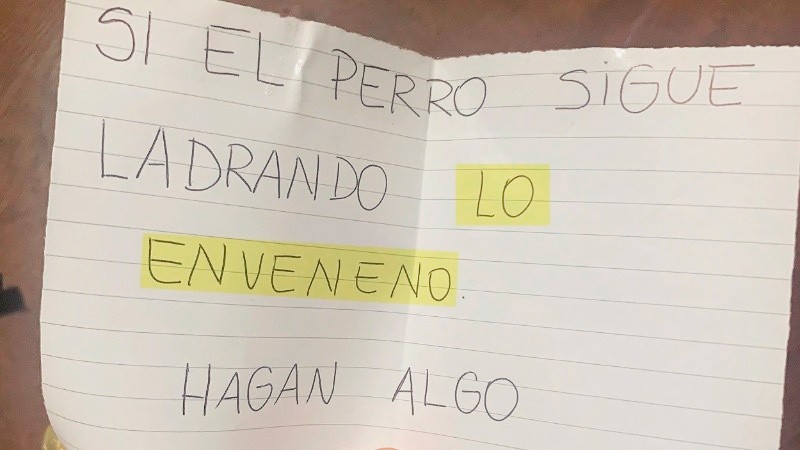 SI EL PERRO SIGUE
LADRANDO LO
ENVENENO.
HAGAN ALGO